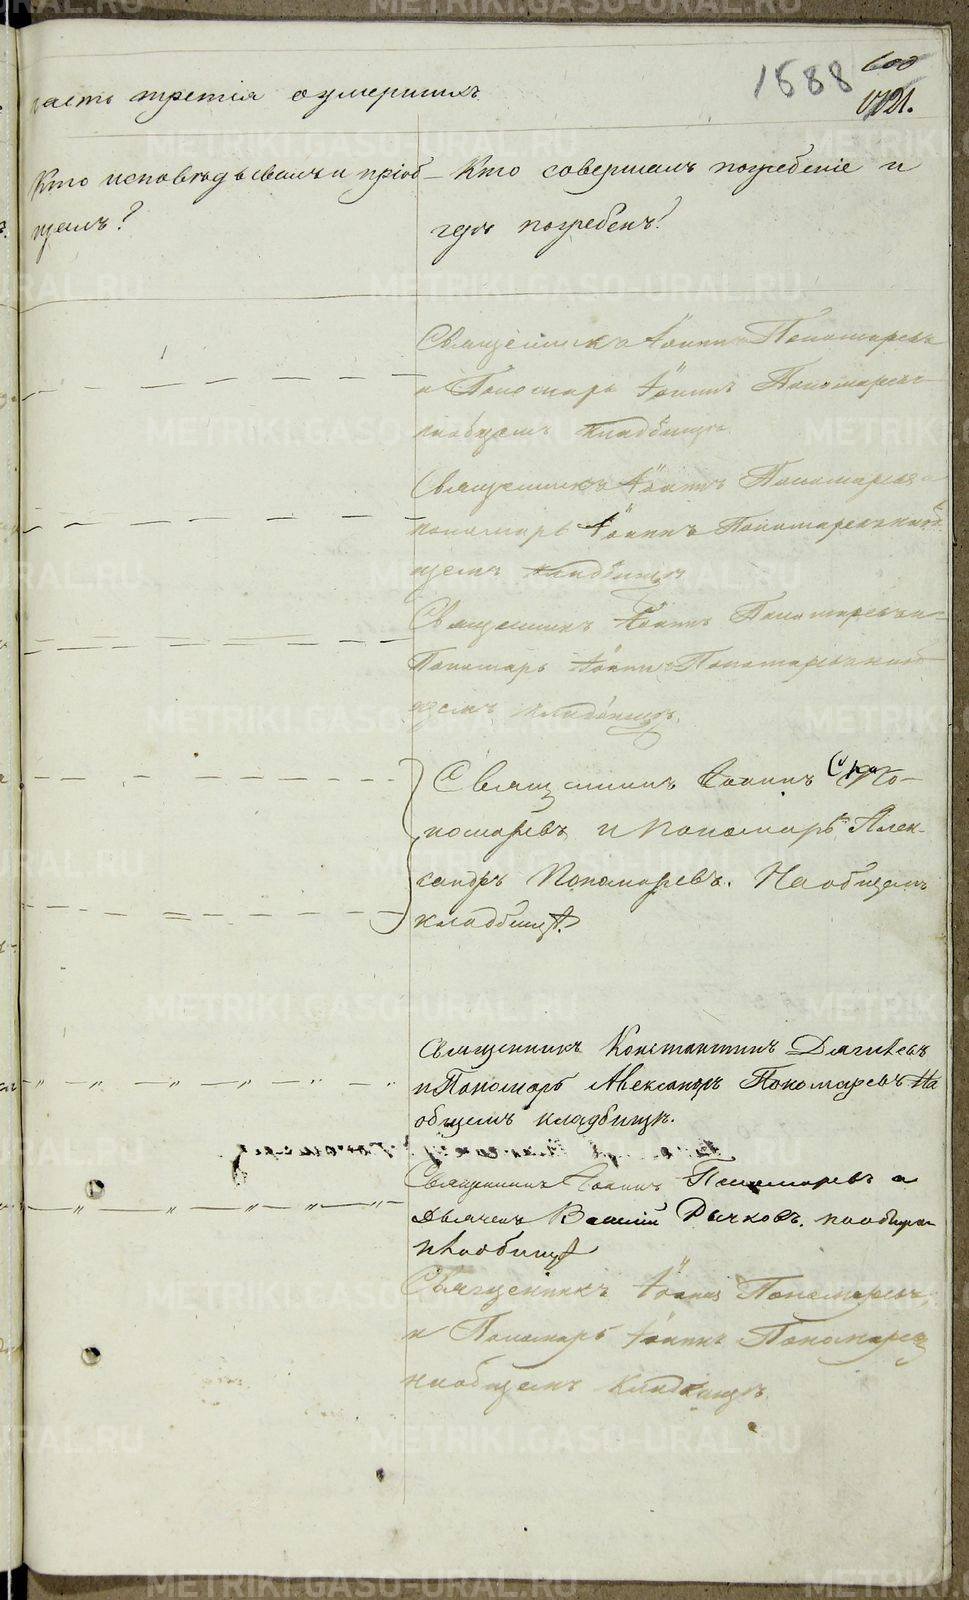 1588
608
1121.
часть третія оумершихъ
Кто исповѣдывалъ и пріоб-
щалъ?
Кто совершалъ погребеніе и
гдѣ погребенъ?
Священникъ Іоаннъ Пономаревъ
и Пономарь Іоаннъ Пономаревъ
наобщемъ кладбищѣ
Священникъ Іоаннъ Пономаревъ и
пономарь Іоаннъ Пономаревъ наоб
щемъ кладбищѣ
Священникъ Іоаннъ Пономаревъ и
Пономарь Іоаннъ Пономаревъ наоб
щемъ кладбищѣ.
Священникъ Іоаннъ По-
номаревъ и пономарь Алек-
сандръ Пономаревъ. На общемъ
кладбищѣ.
Священникъ Константинъ Дягилевъ
и Пономарь Александръ Пономаревъ На
общемъ кладбищѣ.
Священникъ Іоаннъ Пономаревъ и
Дьячекъ Василій Рычковъ. на общем
кладбищѣ
Священникъ Іоаннъ Пономаревъ
и Пономарь Іоаннъ Пономаревъ
наобщемъ кладбищѣ.
METRIKI.GASO-URAL.RU